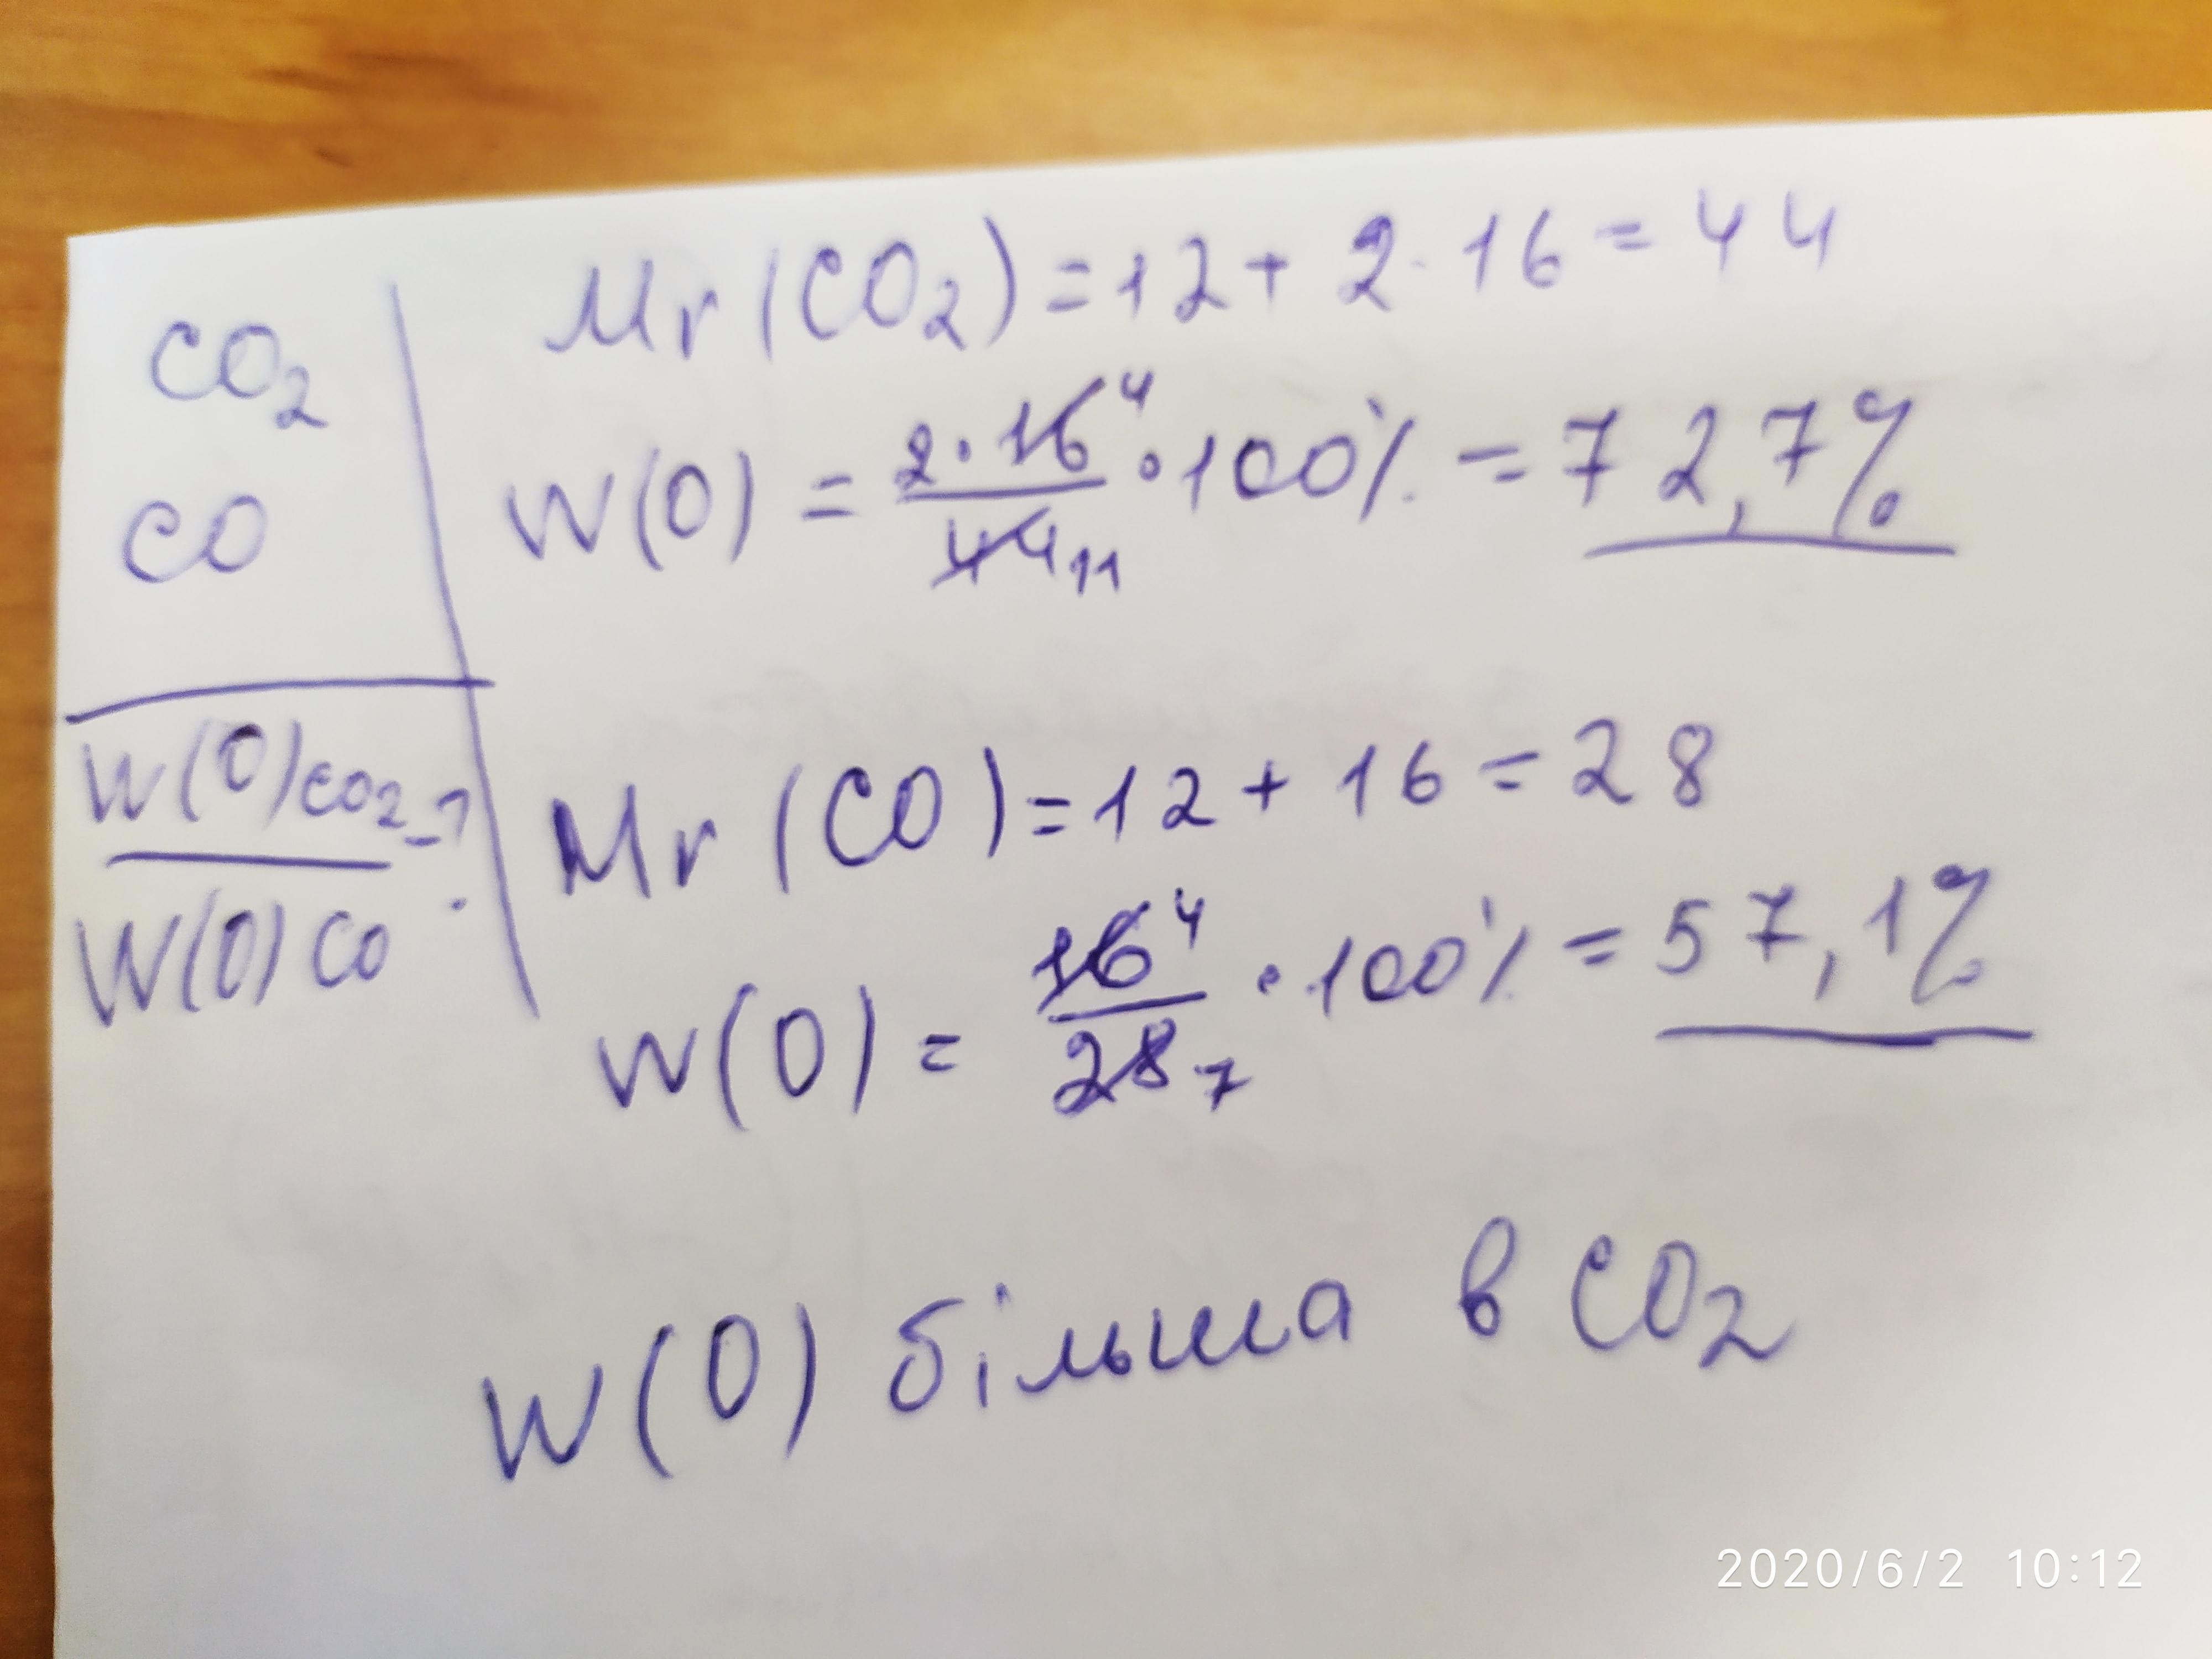 CO₂
CO
W(O)CO₂ - ?
W(O)CO
Mr(CO₂) = 12 + 2·16 = 44
W(O) = 2·16 4 / 44 11 · 100% = 72,7%
Mr(CO) = 12 + 16 = 28
W(O) = 16 4 / 28 7 · 100% = 57,1%
W(O) більша в CO₂
2020/6/2 10:12